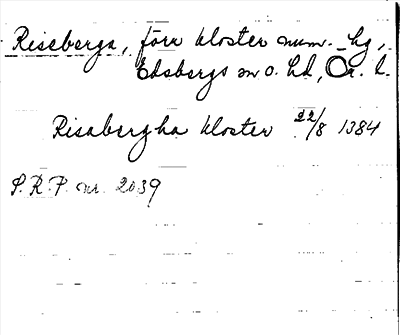 Riseberga, förr kloster num. hg,
Edsbergs sn o. hd, Ör. l.
Risabergha kloster 22/8 1384
S.R.P. nr. 2039